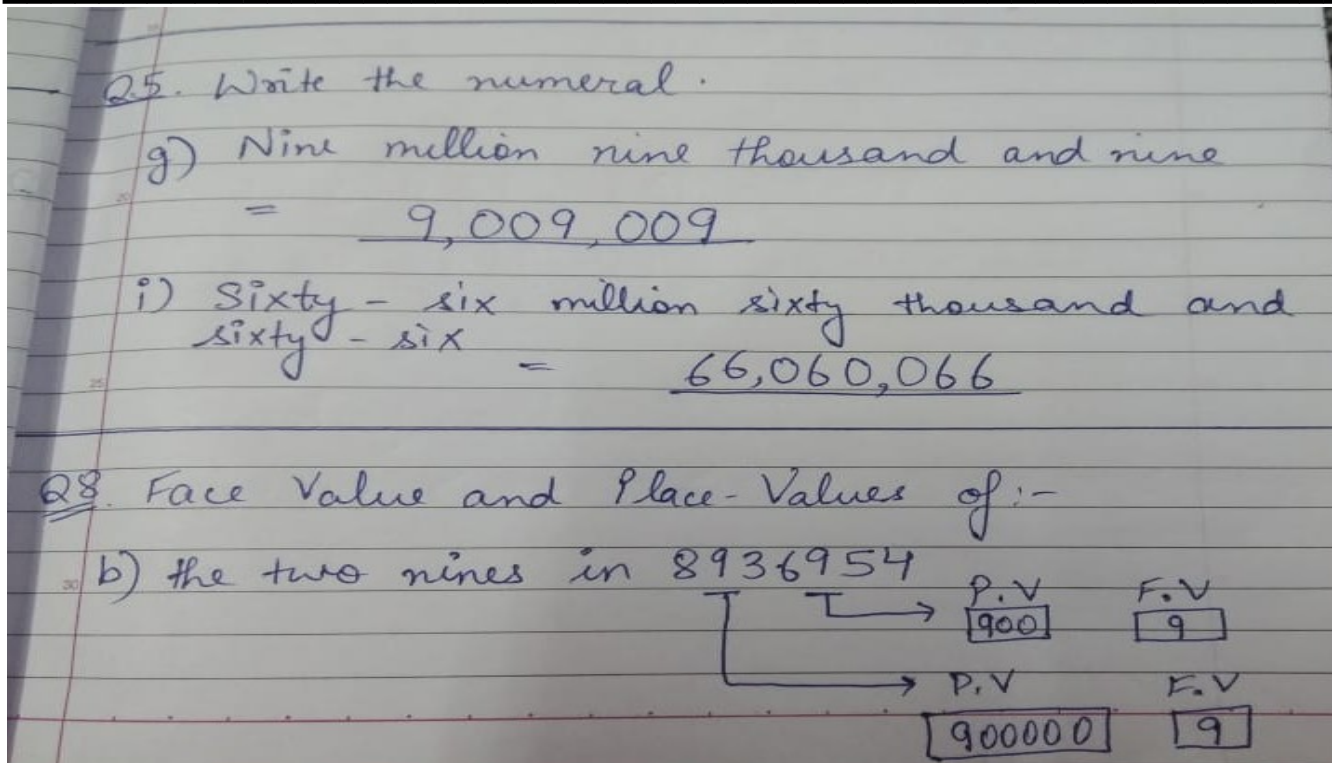 Q5. Write the numeral.
g) Nine million nine thousand and nine
= 9,009,009
i) Sixty-six million sixty thousand and
sixty-six = 66,060,066
Q8. Face Value and Place-Values of:-
b) the two nines in 8936954
P.V F.V
900 9
P.V F.V
900000 9